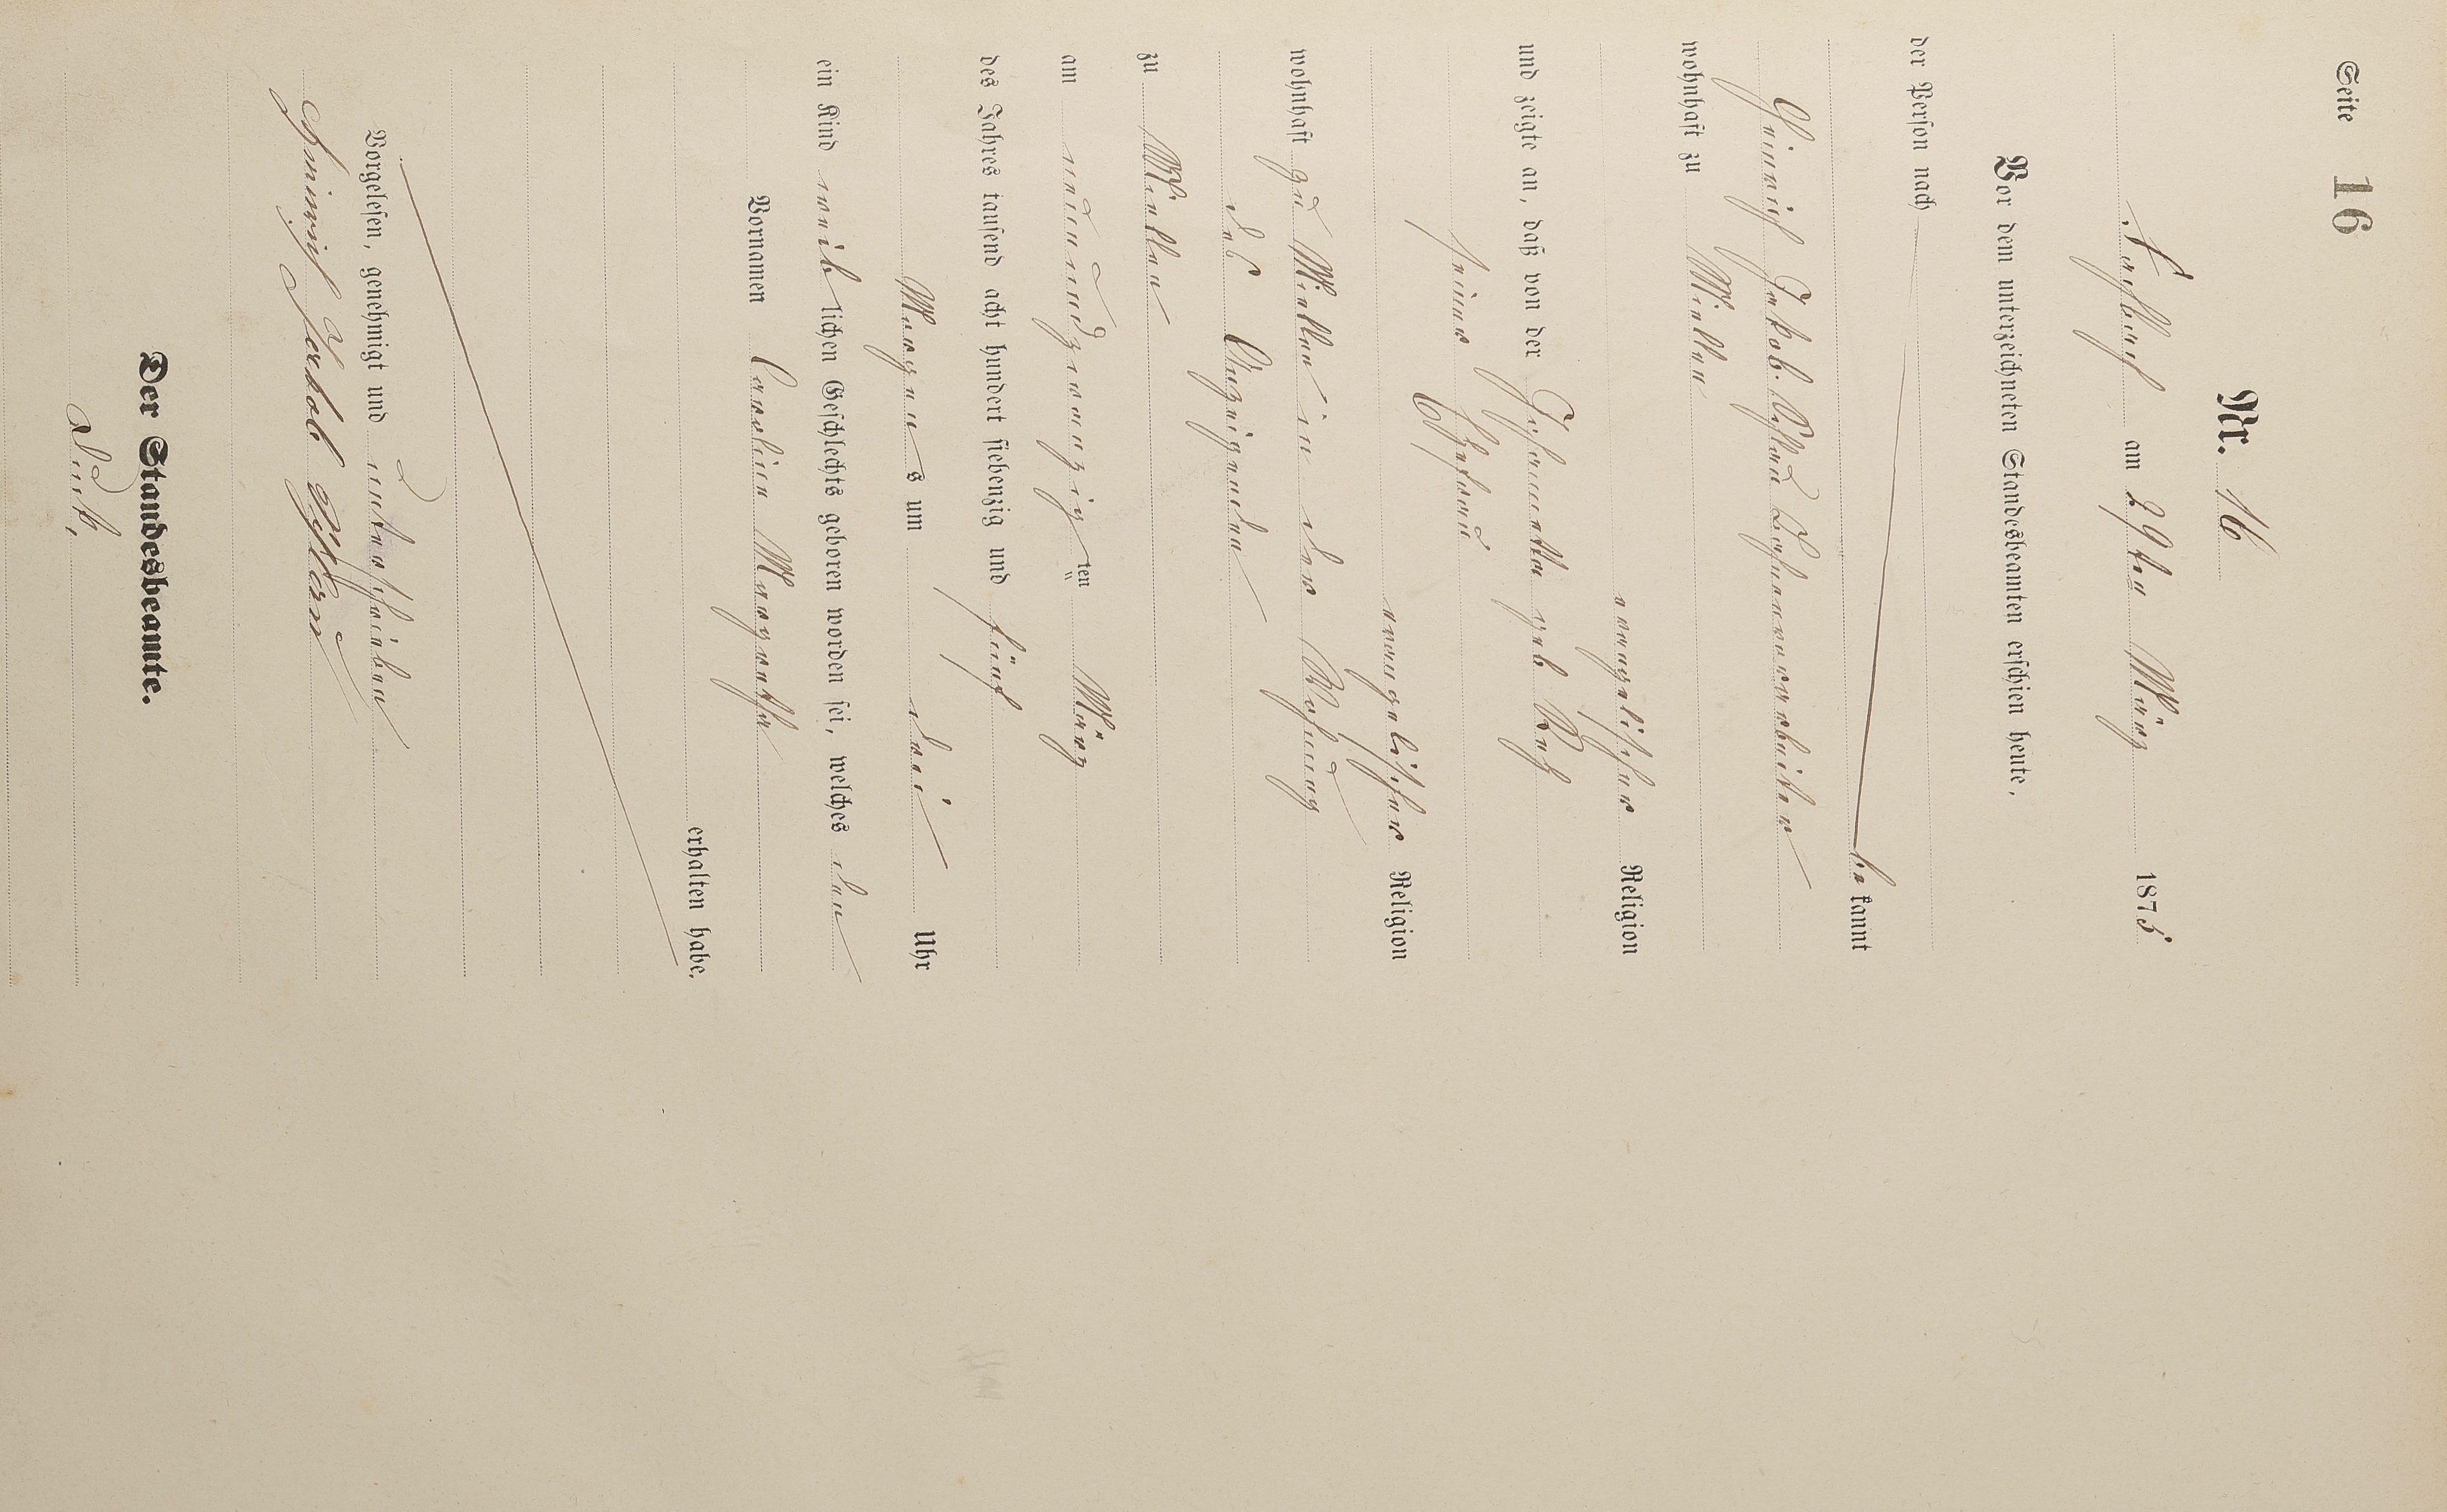 Seite 16
Nr. 16
Fachbach am 29ten März 1875
Vor dem unterzeichneten Standesbeamten erschien heute,
der Person nach
be kannt
Heinrich Jakob Bahnarbeiter
wohnhaft zu Miellen
evangelischer Religion
und zeigte an, daß von der Johannette geb
seiner Ehefrau
evangelischer Religion
wohnhaft zu Miellen in der Wohnung
des Anzeigenden
zu Miellen
am neunundzwanzig ten März
des Jahres tausend acht hundert siebenzig und fünf
Morgen s um drei Uhr
ein Kind weib lichen Geschlechts geboren worden sei, welches den
Vornamen Carline Margretha
erhalten habe.
Vorgelesen, genehmigt und unterschrieben
Heinrich Jakob
Der Standesbeamte.